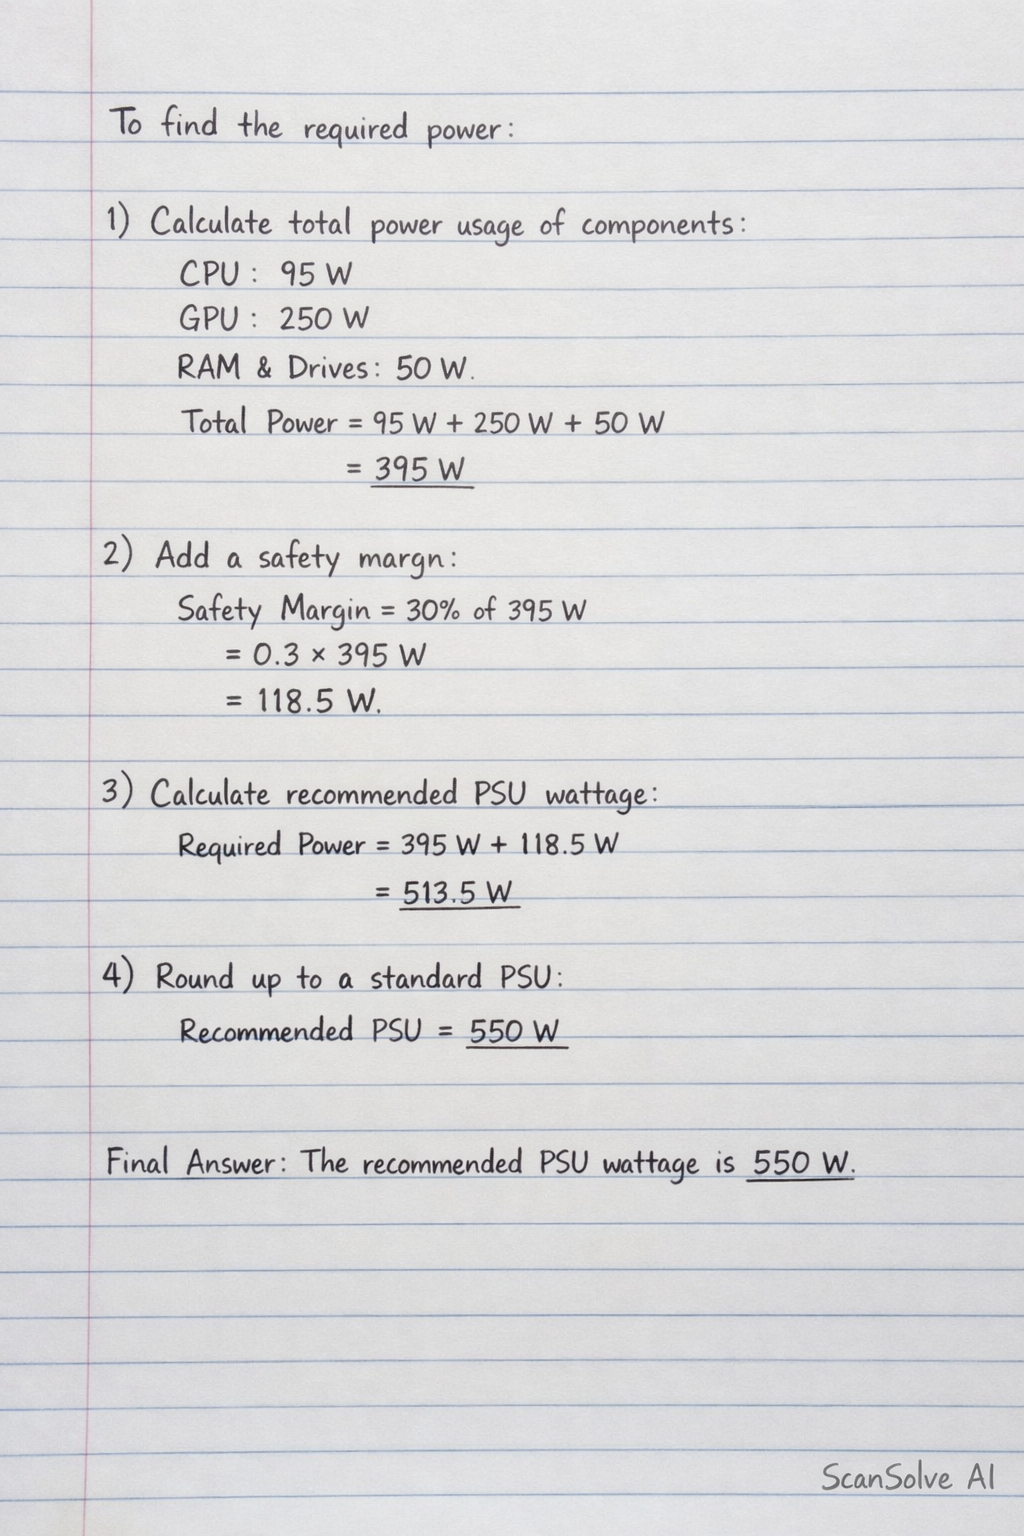 To find the required power:
1) Calculate total power usage of components:
CPU: 95 W
GPU: 250 W
RAM & Drives: 50 W.
Total Power = 95 W + 250 W + 50 W
= 395 W
2) Add a safety margn:
Safety Margin = 30% of 395 W
= 0.3 × 395 W
= 118.5 W.
3) Calculate recommended PSU wattage:
Required Power = 395 W + 118.5 W
= 513.5 W
4) Round up to a standard PSU:
Recommended PSU = 550 W
Final Answer: The recommended PSU wattage is 550 W.
ScanSolve AI